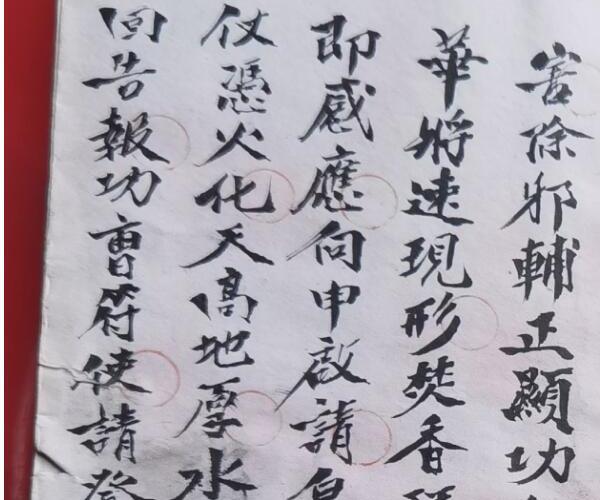 害除邪輔正顯功
華將速現形焚香
即感應向申啟請
仗憑火化天高地厚水
回告報功曹符使請